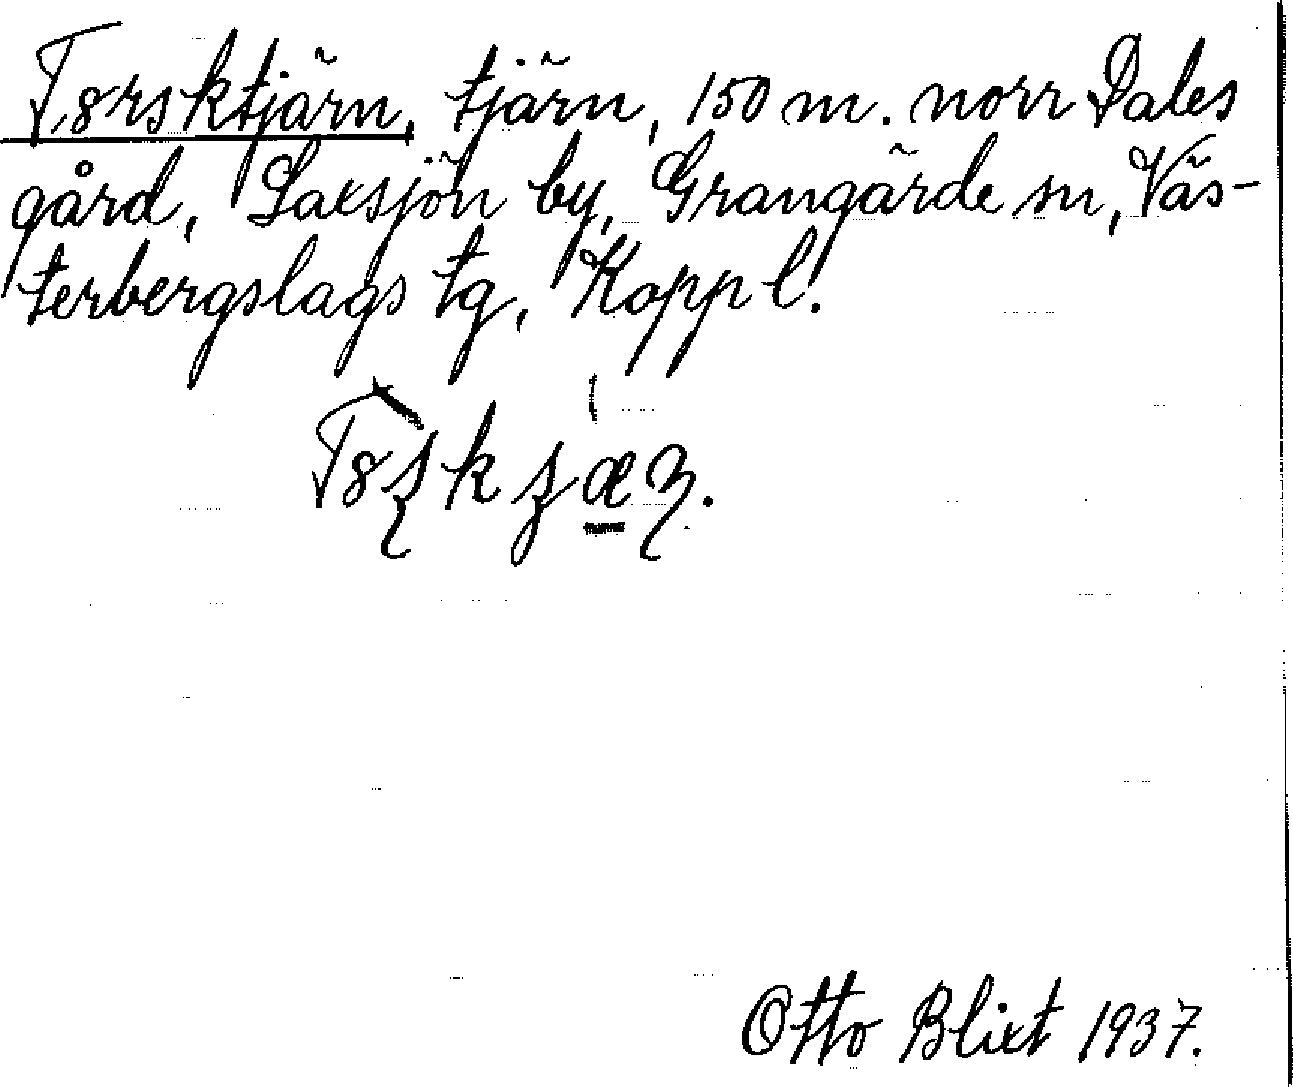 T8rsktjärn, tjärn, 150 m. norr Dales
gård, Laxsjön by, Grangärde sn, Väs-
terbergslags tg, Kopp l.
Otto Blixt 1937.